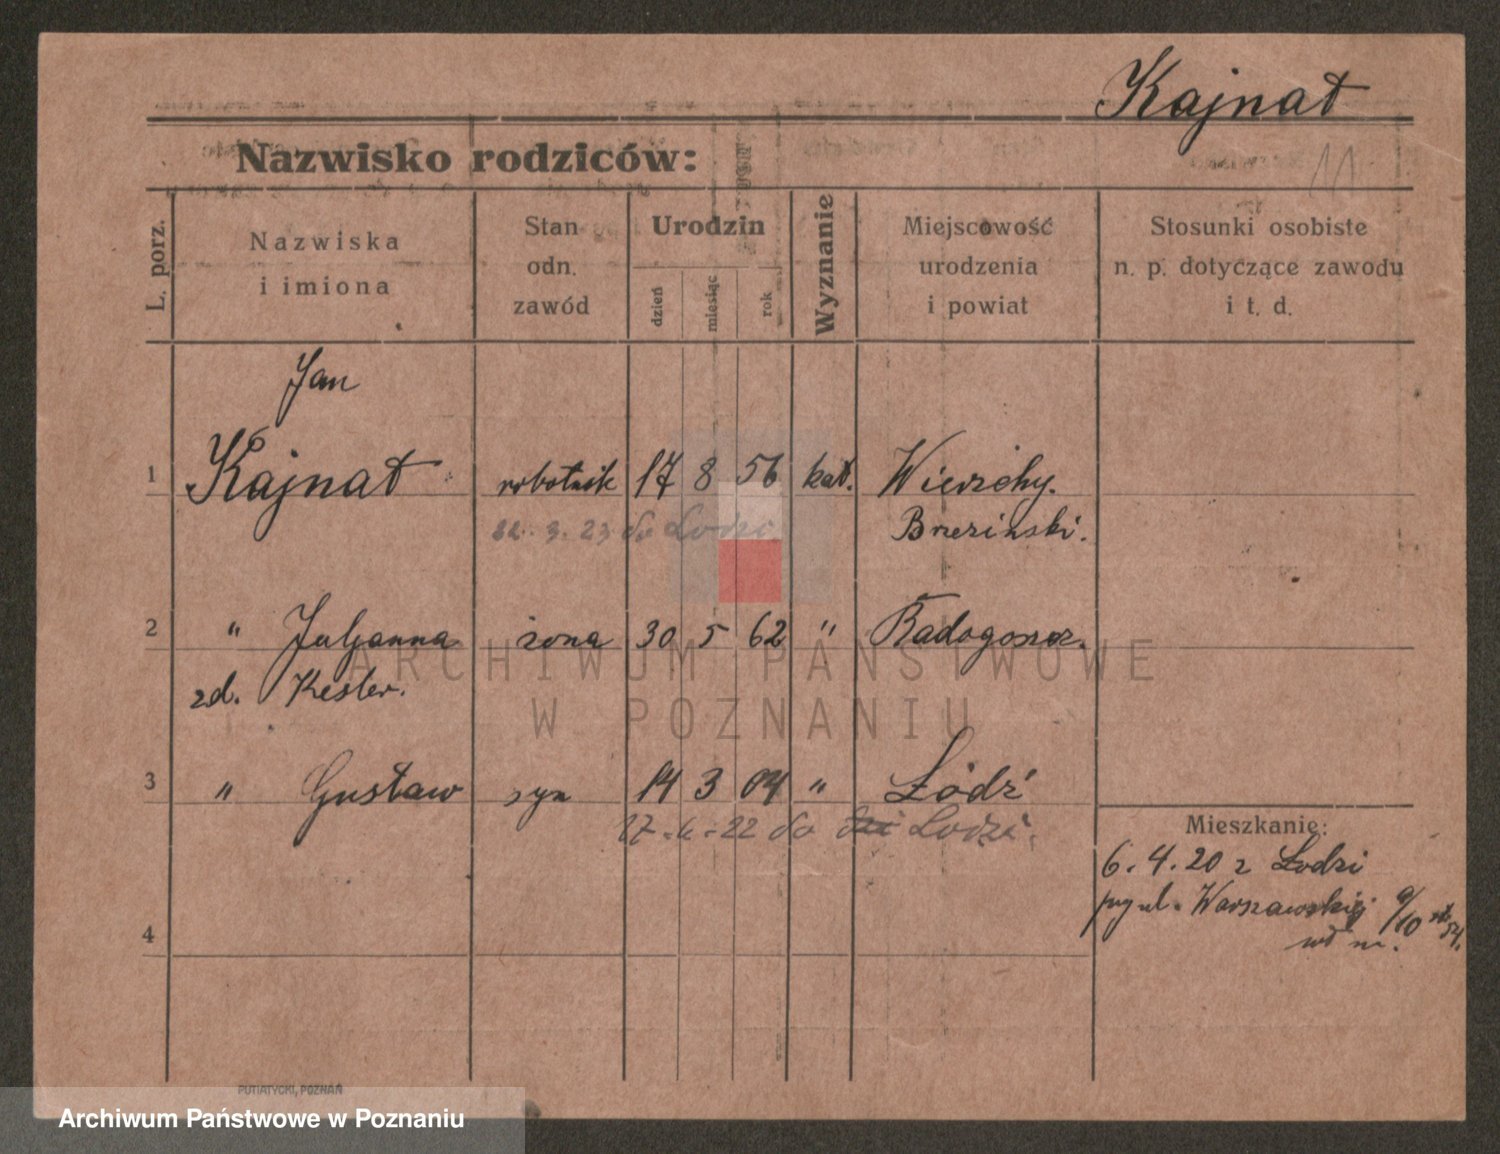 Kajnat
Nazwisko rodziców:
11.
L. porz.
Nazwiska
i imiona
Stan
odn.
zawód
Urodzin
dzień
miesiąc
rok
Wyznanie
Miejscowość
urodzenia
i powiat
Stosunki osobiste
n. p. dotyczące zawodu
i t. d.
Jan
1 Kajnat robotnik 17 8 56 kat. Wierzchy.
22. 3. 23 do Łodzi. Brzeziński.
2 " Juljanna żona 30 5 62 " Radogoszcz.
zd. Kester.
ARCHIWUM PAŃSTWOWE
W POZNANIU
3 " Gustaw syn 14 3 04 " Łódź
22 do Łodzi.
Mieszkanie:
6. 4. 20 z Łodzi
przy ul. Warszawskiej 9/10
4
PUTIATYCKI, POZNAŃ
Archiwum Państwowe w Poznaniu